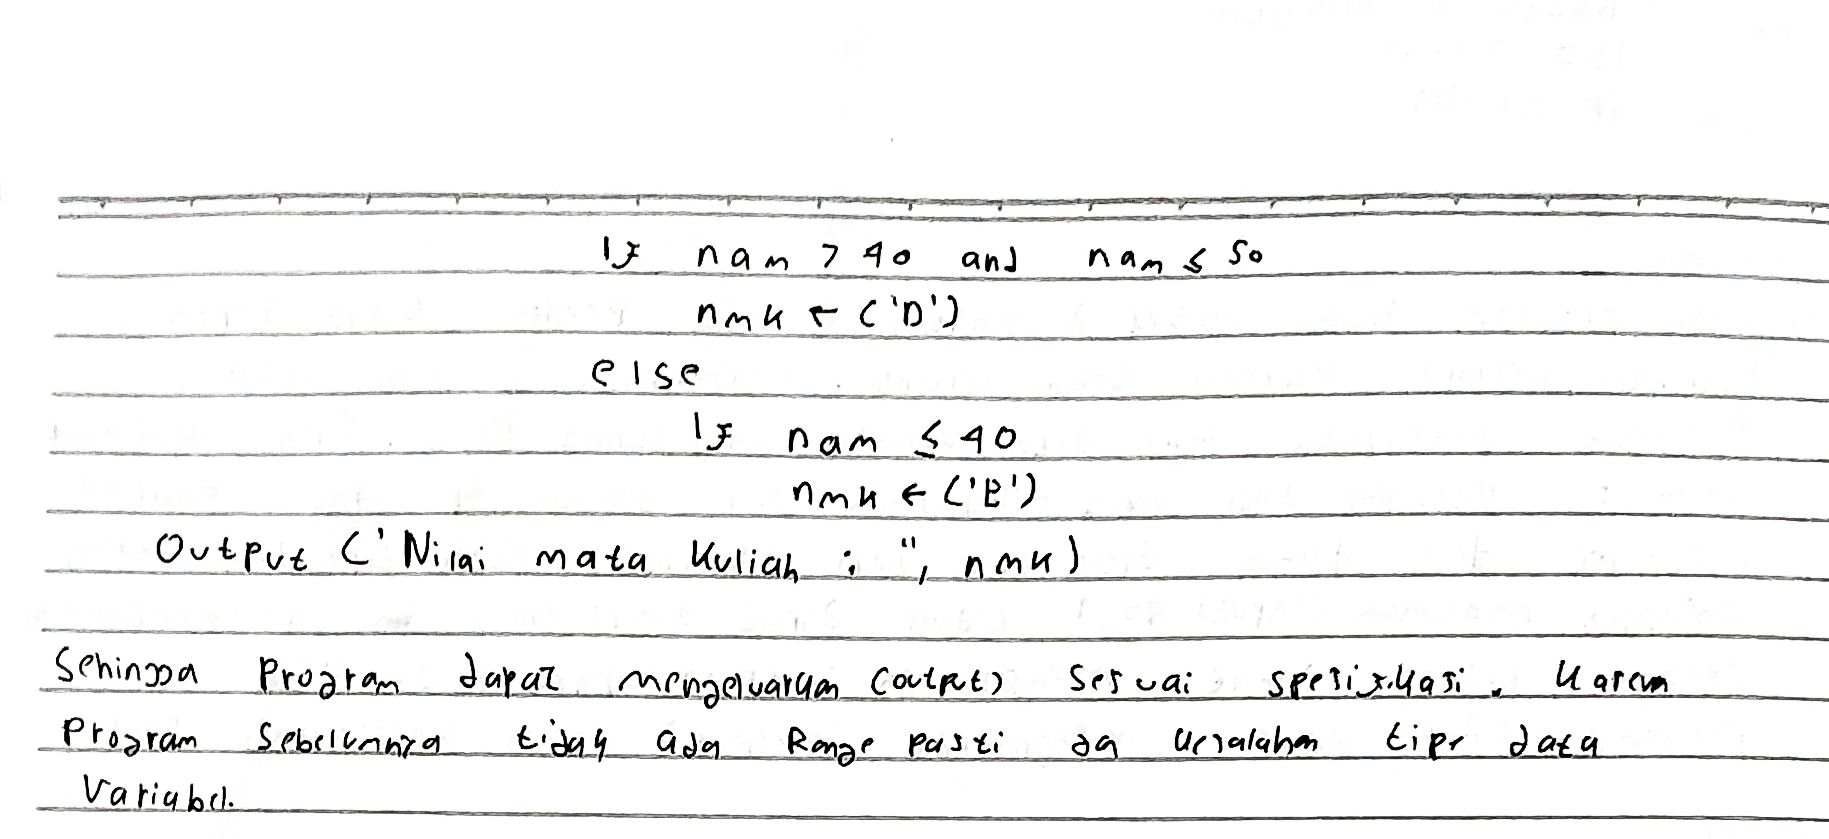 If nam > 40 and nam ≤ 50
nmk ← ('D')
else
If nam ≤ 40
nmk ← ('E')
Output (' Nilai mata kuliah : ", nmk)
Sehingga Program dapat mengeluarkan (output) Sesuai spesifikasi. karena
Program Sebelumnya tidak ada Range pasti da kesalahan tipe data
Variabel.